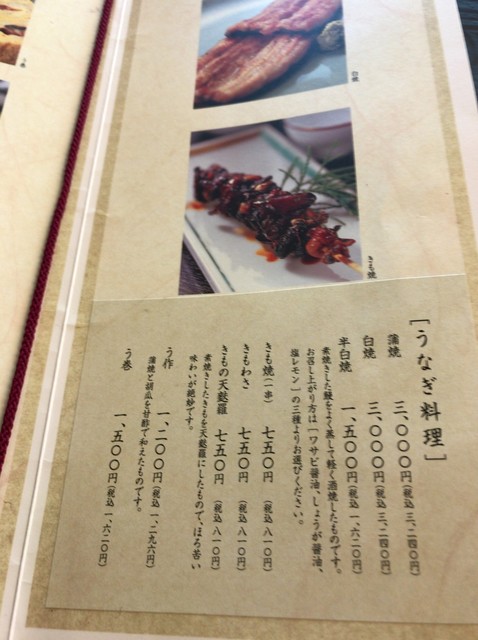 う巻
白焼
きも焼
[うなぎ料理]
蒲焼 三、〇〇〇円(税込 三、二四〇円)
白焼 三、〇〇〇円(税込 三、二四〇円)
半白焼 一、五〇〇円(税込 一、六二〇円)
素焼きした鰻をよく蒸して軽く酒焼したものです。
お召し上がり方は[ワサビ醤油、しょうが醤油、
塩レモン]の三種よりお選びください。
きも焼(一串) 七五〇円 (税込 八一〇円)
きもわさ 七五〇円 (税込 八一〇円)
きもの天麩羅 七五〇円 (税込 八一〇円)
素焼きしたきもを天麩羅にしたもので、ほろ苦い
味わいが絶妙です。
う作 一、二〇〇円(税込 一、二九六円)
蒲焼と胡瓜を甘酢で和えたものです。
う巻 一、五〇〇円(税込 一、六二〇円)